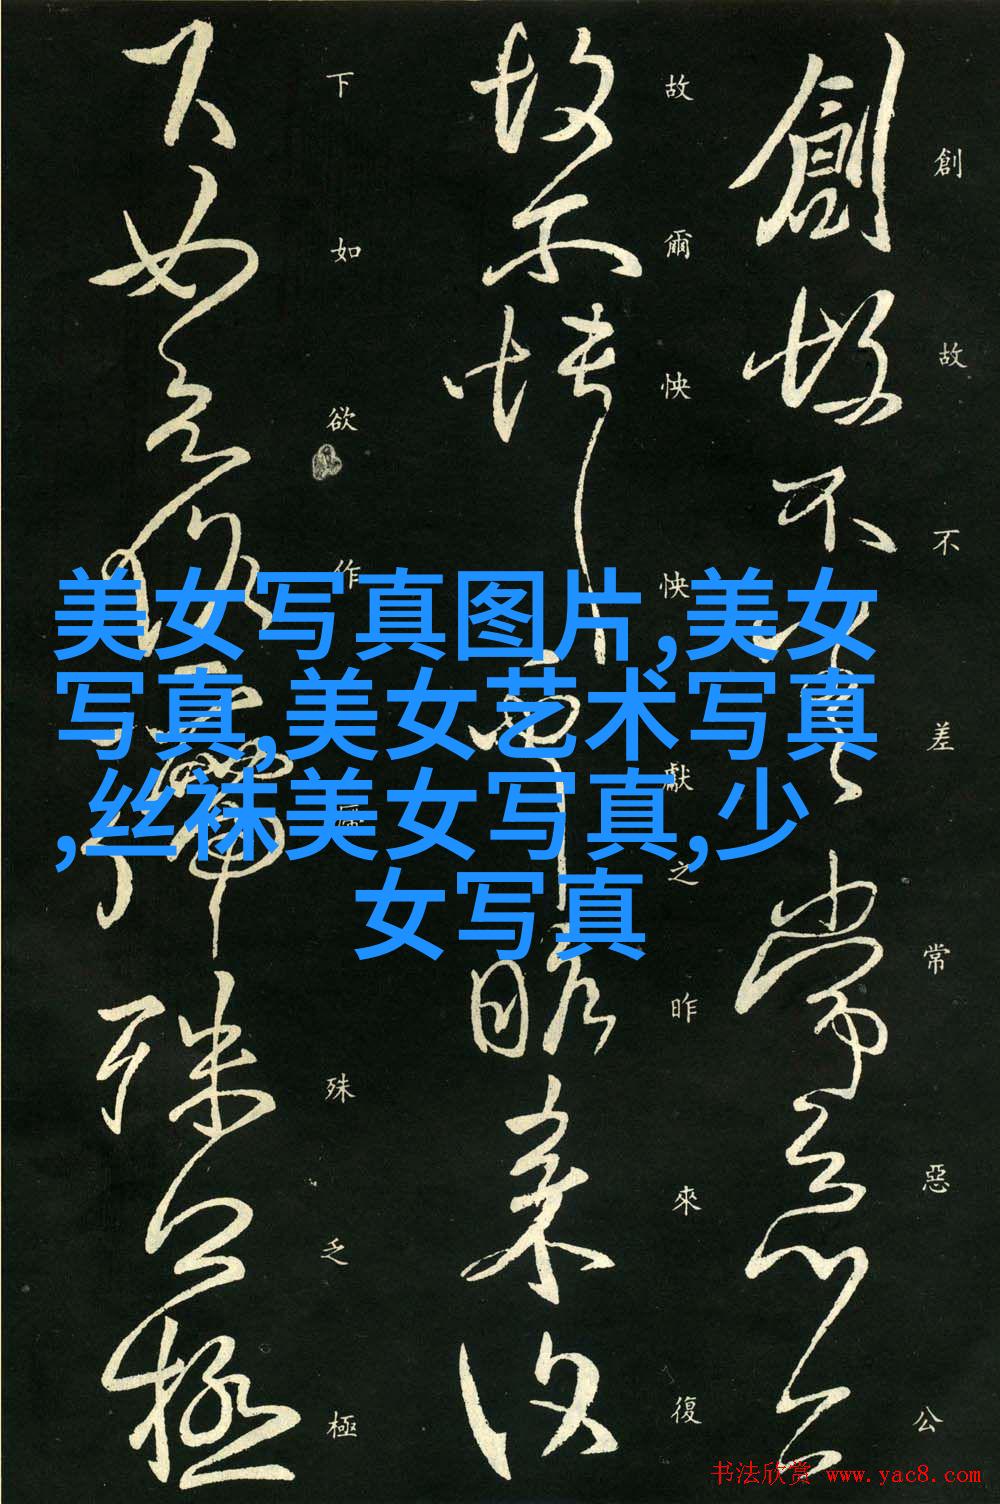 創故不差常惡公
故爾怏怏獻之昨來復
下如欲作殊乏極
美女写真图片,美女
写真,美女艺术写真
,丝袜美女写真,少
女写真
书法欣赏 www.yac8.com